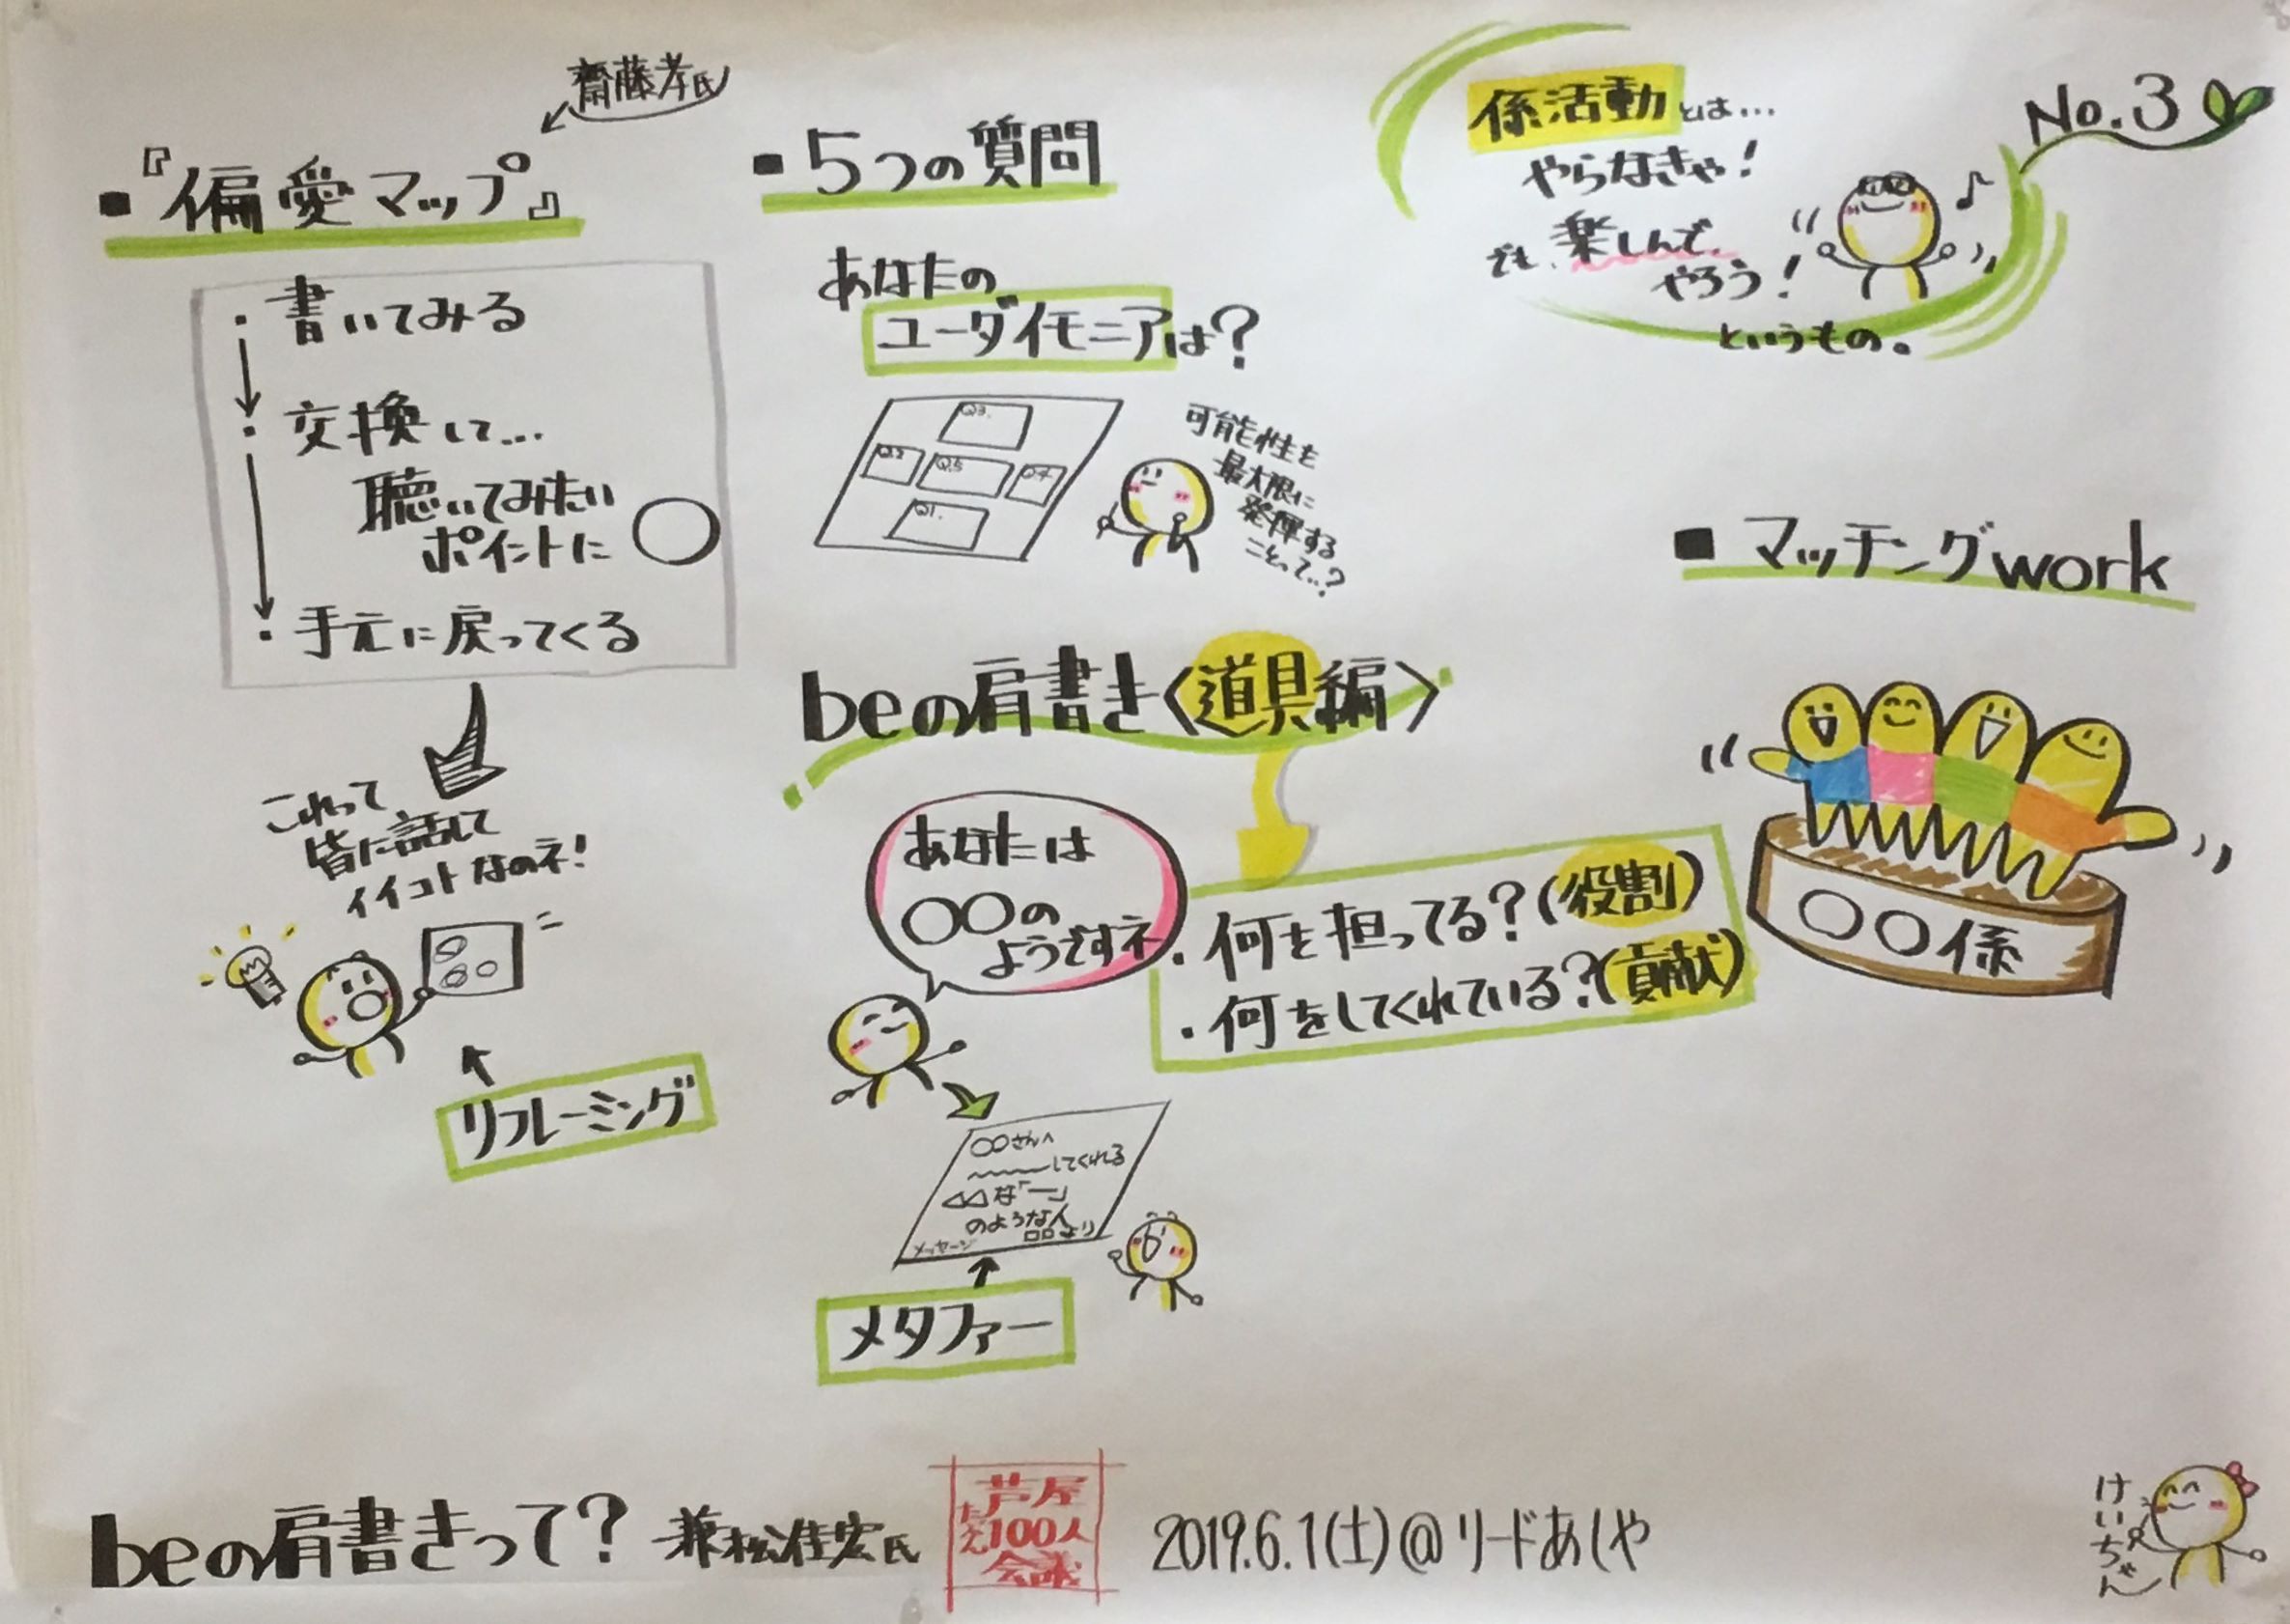 齋藤孝氏
■『偏愛マップ』
・書いてみる
・交換して…
聴いてみたい
ポイントに◯
・手元に戻ってくる
これって
皆に話して
イイコトなのネ！
リフレーミング
■5つの質問
あなたの
ユーダイモニアは？
Q3.
Q2
Q5
Q4
Q1.
可能性を
最大限に
発揮する
ことって‥？
beの肩書き〈道具編〉
あなたは
〇〇の
ようですネ
・何を担ってる？(役割)
・何をしてくれている？(貢献)
〇〇さんへ
〜〜〜してくれる
△△な「―」
のような人
□□より
メッセージ
メタファー
係活動とは…
やらなきゃ！
でも、楽しんで
やろう！
というもの。
No.3
■マッチングwork
〇〇係
beの肩書きって？ 兼松佳宏氏
芦屋
100人
会議
2019.6.1(土)@リードあしや
けいちゃん